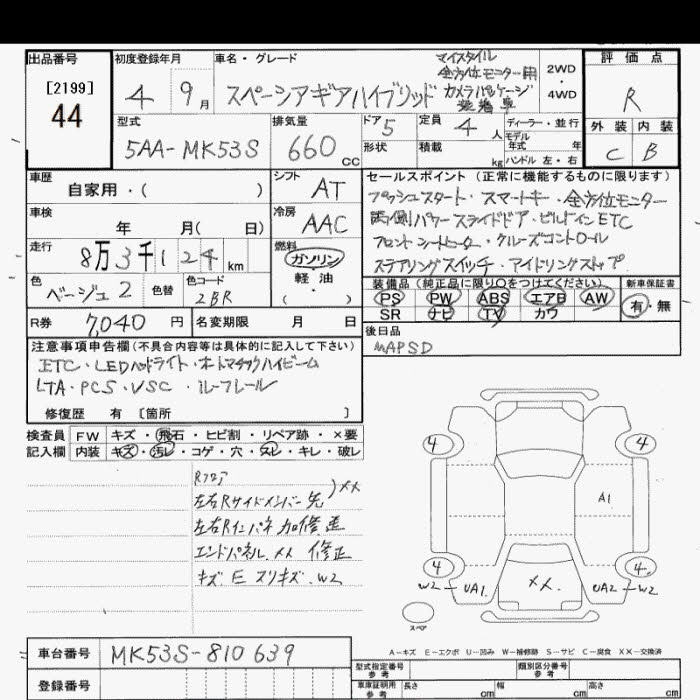 出品番号
[2199]
44
初度登録年月
4 9月
車名・グレード
スペーシアギアハイブリッド
マイスタイル
全方位モニター用
カメラパッケージ
装着車
2WD
4WD
評価点
R
外装 内装
C B
型式
5AA-MK53S
排気量
660 cc
ドア 5
形状
定員 4 人
積載 kg
ディーラー・並行
モデル年式 年
ハンドル 左・右
車歴
自家用・( )
シフト AT
車検
年 月( 日)
冷房 AAC
走行
8万3千124 km
燃料
ガソリン
軽・油
・( )
色
ベージュ2
色替
色コード
2BR
R券 7,040 円
名変期限 月 日
セールスポイント(正常に機能するものに限ります)
プッシュスタート・スマートキー・全方位モニター
両側パワースライドドア・ビルトインETC
フロントシートヒーター・クルーズコントロール
ステアリングスイッチ・アイドリングストップ
装備品(純正品に限り○をつけてください)
PS PW ABS エアB AW
SR ナビ TV カワ
新車保証書
有・無
後日品
MAPSD
注意事項申告欄(不具合内容等は具体的に記入して下さい)
ETC・LEDヘッドライト・オートマチックハイビーム
LTA・PCS・VSC・ルーフレール
修復歴 有 [箇所 ]
検査員記入欄
FW キズ・飛石・ヒビ割・リペア跡・×要
内装 キズ・汚レ・コゲ・穴・スレ・キレ・破レ
Rフロア
左右Rサイドメンバー先 )××
左右Rインパネ 加修歪
エンドパネル ×× 修正
キズ E スリキズ W2
4 4
A1
4 4
W2 UA1 ×× UA2 W2
スペア
A-キズ E-エクボ U-凹み W-補修跡 S-サビ C-腐食 ××-交換済
車台番号 MK53S-810639
登録番号
型式指定番号 参考
類別区分番号 参考
車庫証明用 参考
長さ cm 幅 cm 高さ cm